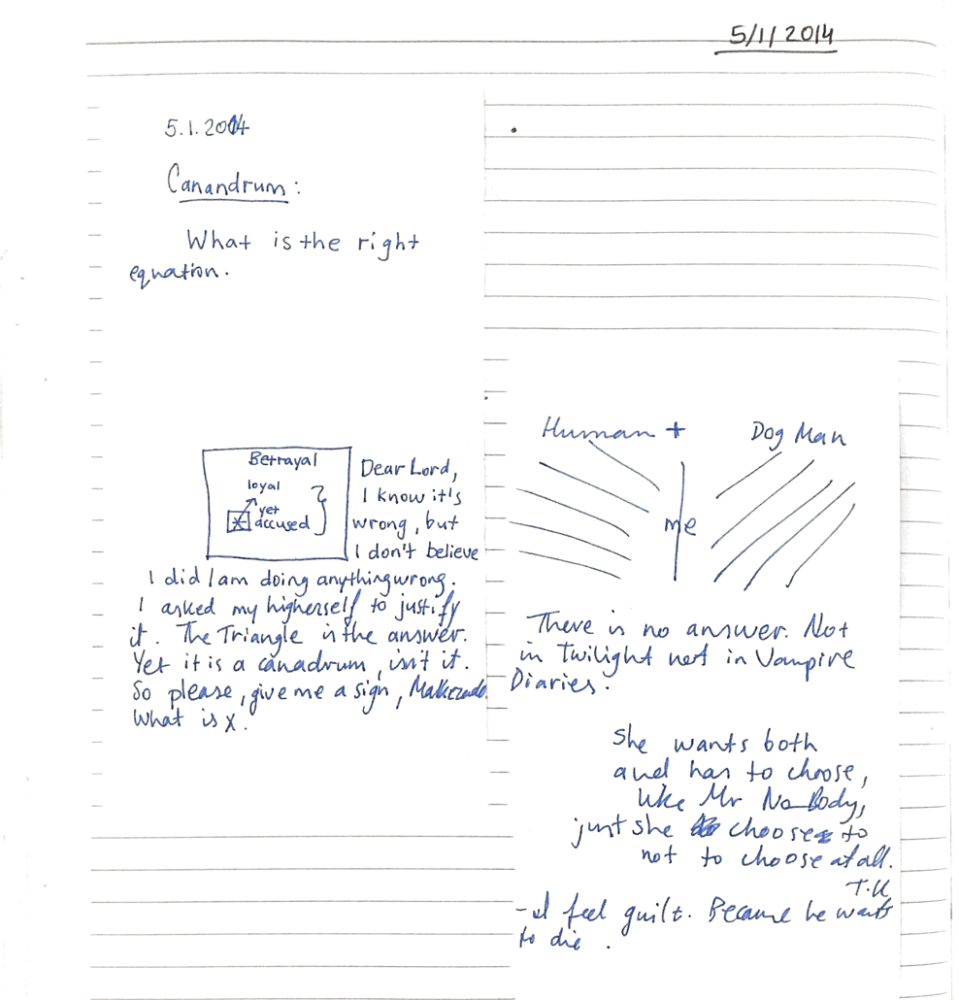 5/1/2014
5.1.2014
Canandrum:
What is the right
equation.
Betrayal
loyal
yet
accused
Dear Lord,
I know it's
wrong, but
I don't believe
I did/am doing anything wrong.
I asked my higherself to justify
it. The Triangle is the answer.
Yet it is a canadrum, isn't it.
So please, give me a sign,
What is x.
Human + Dog Man
me
There is no answer. Not
in Twilight not in Vampire
Diaries.
She wants both
and has to choose,
like Mr No Body,
just she chooses to
not to choose at all.
T.K
- I feel guilt. Because he wants
to die.